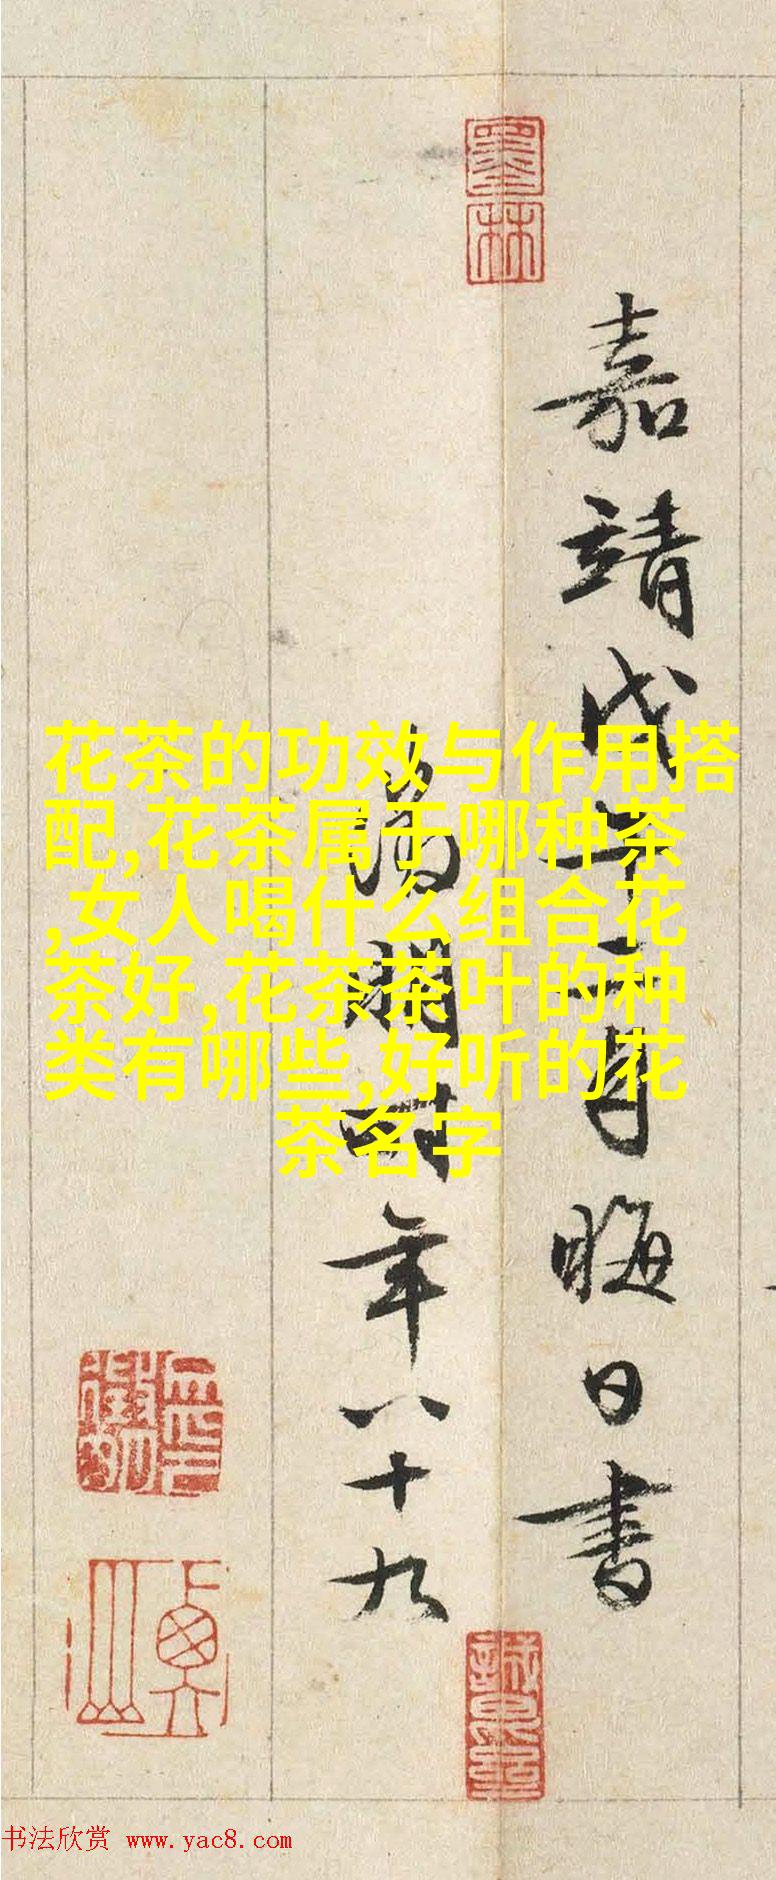 嘉靖戊午二月晦日書
徵明時年八十九
墨林
花茶的功效与作用搭
配,花茶属于哪种茶
,女人喝什么组合花
茶好,花茶茶叶的种
类有哪些,好听的花
茶名字
书法欣赏 www.yac8.com